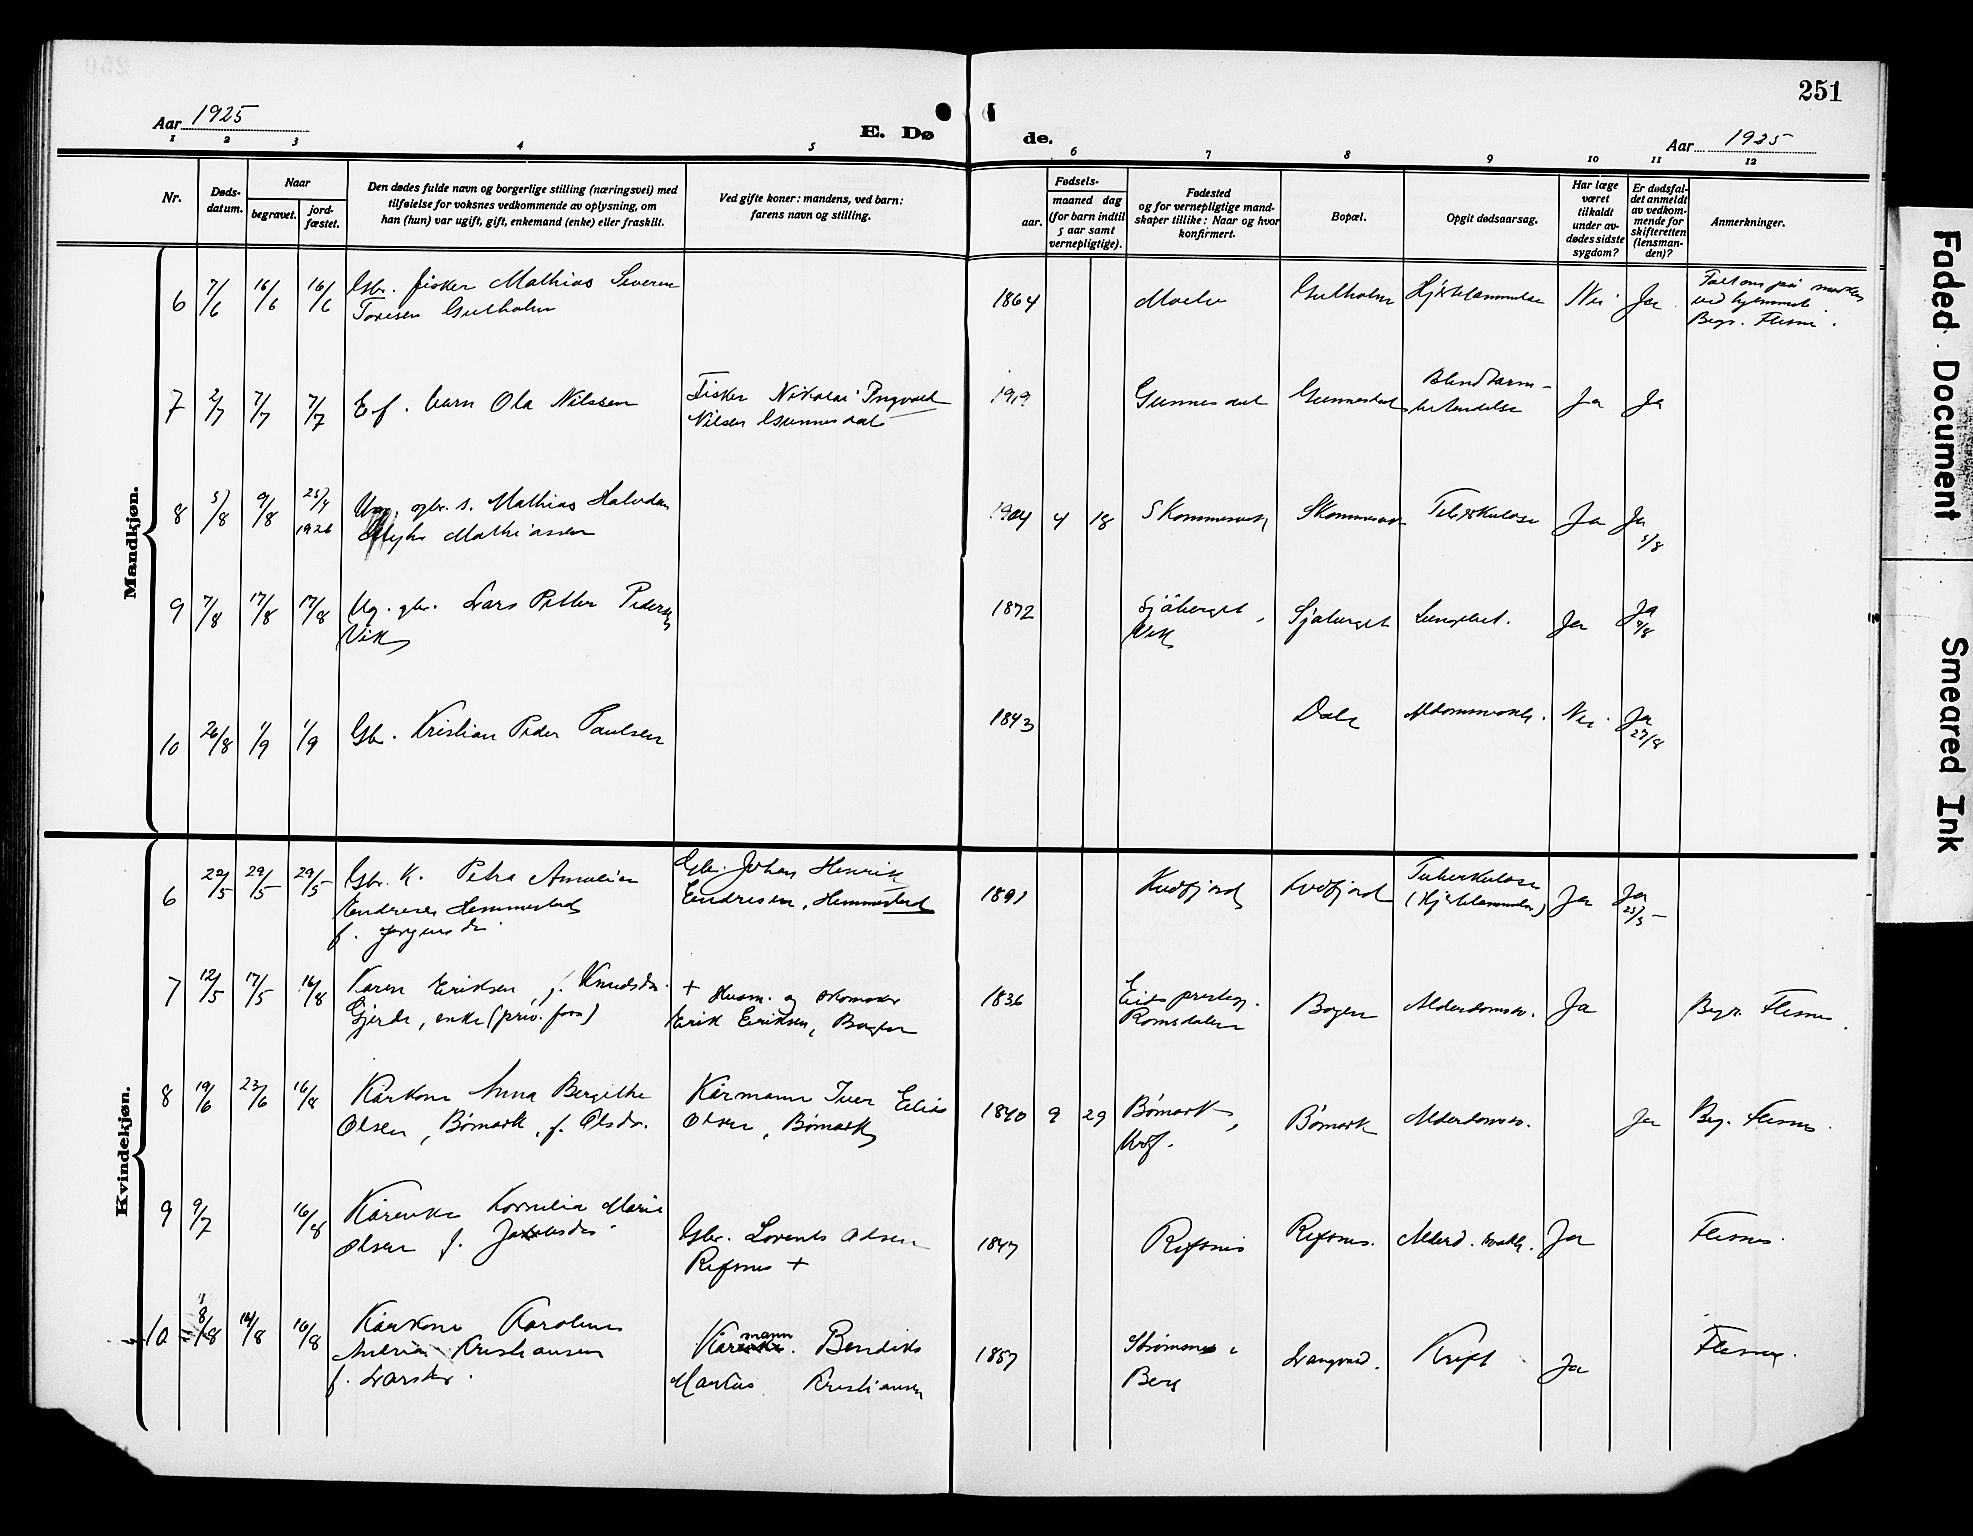 251
Aar 1925
E. Dø de.
Aar 1925
1 2 3 4 5 6 7 8 9 10 11 12
Nr.
Døds-
datum.
Naar
begravet.
jord-
fæstet.
Den dødes fulde navn og borgerlige stilling (næringsvei) med
tilføielse for voksnes vedkommende av oplysning, om
han (hun) var ugift, gift, enkemand (enke) eller fraskilt.
Ved gifte koner: mandens, ved barn:
farens navn og stilling.
Fødsels-
aar.
maaned dag
(for barn indtil
5 aar samt
vernepligtige).
Fødested
og for vernepligtige mand-
skaper tillike: Naar og hvor
konfirmert.
Bopæl.
Opgit dødsaarsag.
Har læge
været
tilkaldt
under av-
dødes sidste
sygdom?
Er dødsfal-
det anmeldt
av vedkom-
mende for
skifteretten
(lensman-
den)?
Anmerkninger.
Mandkjøn.
6 7/6 16/6 16/6 Gbr. fisker Mathias Severin 1864 Nei Ja
ved hjemmet
Begr.
7 2/7 7/7 7/7 E. f. barn Ola Nilssen Fisker Nikolai Ingvald 1919 Gunnesdal Gunnesdal Blindtarm- Ja Ja
Nilsen Gunnesdal betendelse
8 5/8 9/8 25/4 Ung. gbr. s. Mathias Halvdan 1904 4 18 Skommesvik Tuberkulose Ja Ja
1926 Mathiassen 5/8
9 7/8 17/8 17/8 Ug. gbr. Lars Petter Pedersen 1872 Sjåberget, Sjåberget Ja Ja
Vik Vik 9/8
10 26/8 1/9 1/9 Gbr. Kristian Peder Paulsen 1843 Dale Nei Ja
27/8
Kvindekjøn.
6 22/5 29/5 29/5 Gbr. k. Petra Amalie Gbr. Johan Henrik 1891 Kvæfjord Kvæfjord Tuberkulose Ja Ja
Endresen Hemmestad Endresen, Hemmestad (Hjertelammelse) 23/5
f. Jørgensdr.
7 12/5 17/5 16/8 Karen Eriksen, f. Knudsdr. + Husm. og skomaker 1836 Eids prestegj. Bogen Alderdomssv. Ja Begr. Flesnes.
Gjerde, enke (priv. fors) Erik Eriksen, Bogen Romsdalen
8 19/6 23/6 16/8 Kårkone Anna Bergithe Kårmann Iver Elias 1840 9 29 Bømark, Bømark Alderdomssv. Ja Beg. Flesnes.
Olsen, Bømark, f. Olsdr. Olsen, Bømark Kvæf.
9 9/7 16/8 Kårenke Kornelia Marie Gbr. Lorents Olsen 1847 Refsnes Refsnes. Alderd. svakh. Ja Flesnes.
Olsen f. Refsnes +
10 8/8 14/8 16/8 Kårkone Karoline Kårmann. Bendiks 1857 Strømsnes i Langvad. Kreft Ja Flesnes.
Kristiansen Markus Kristiansen Berg
f. Larsdr.
Faded Document
Smeared Ink